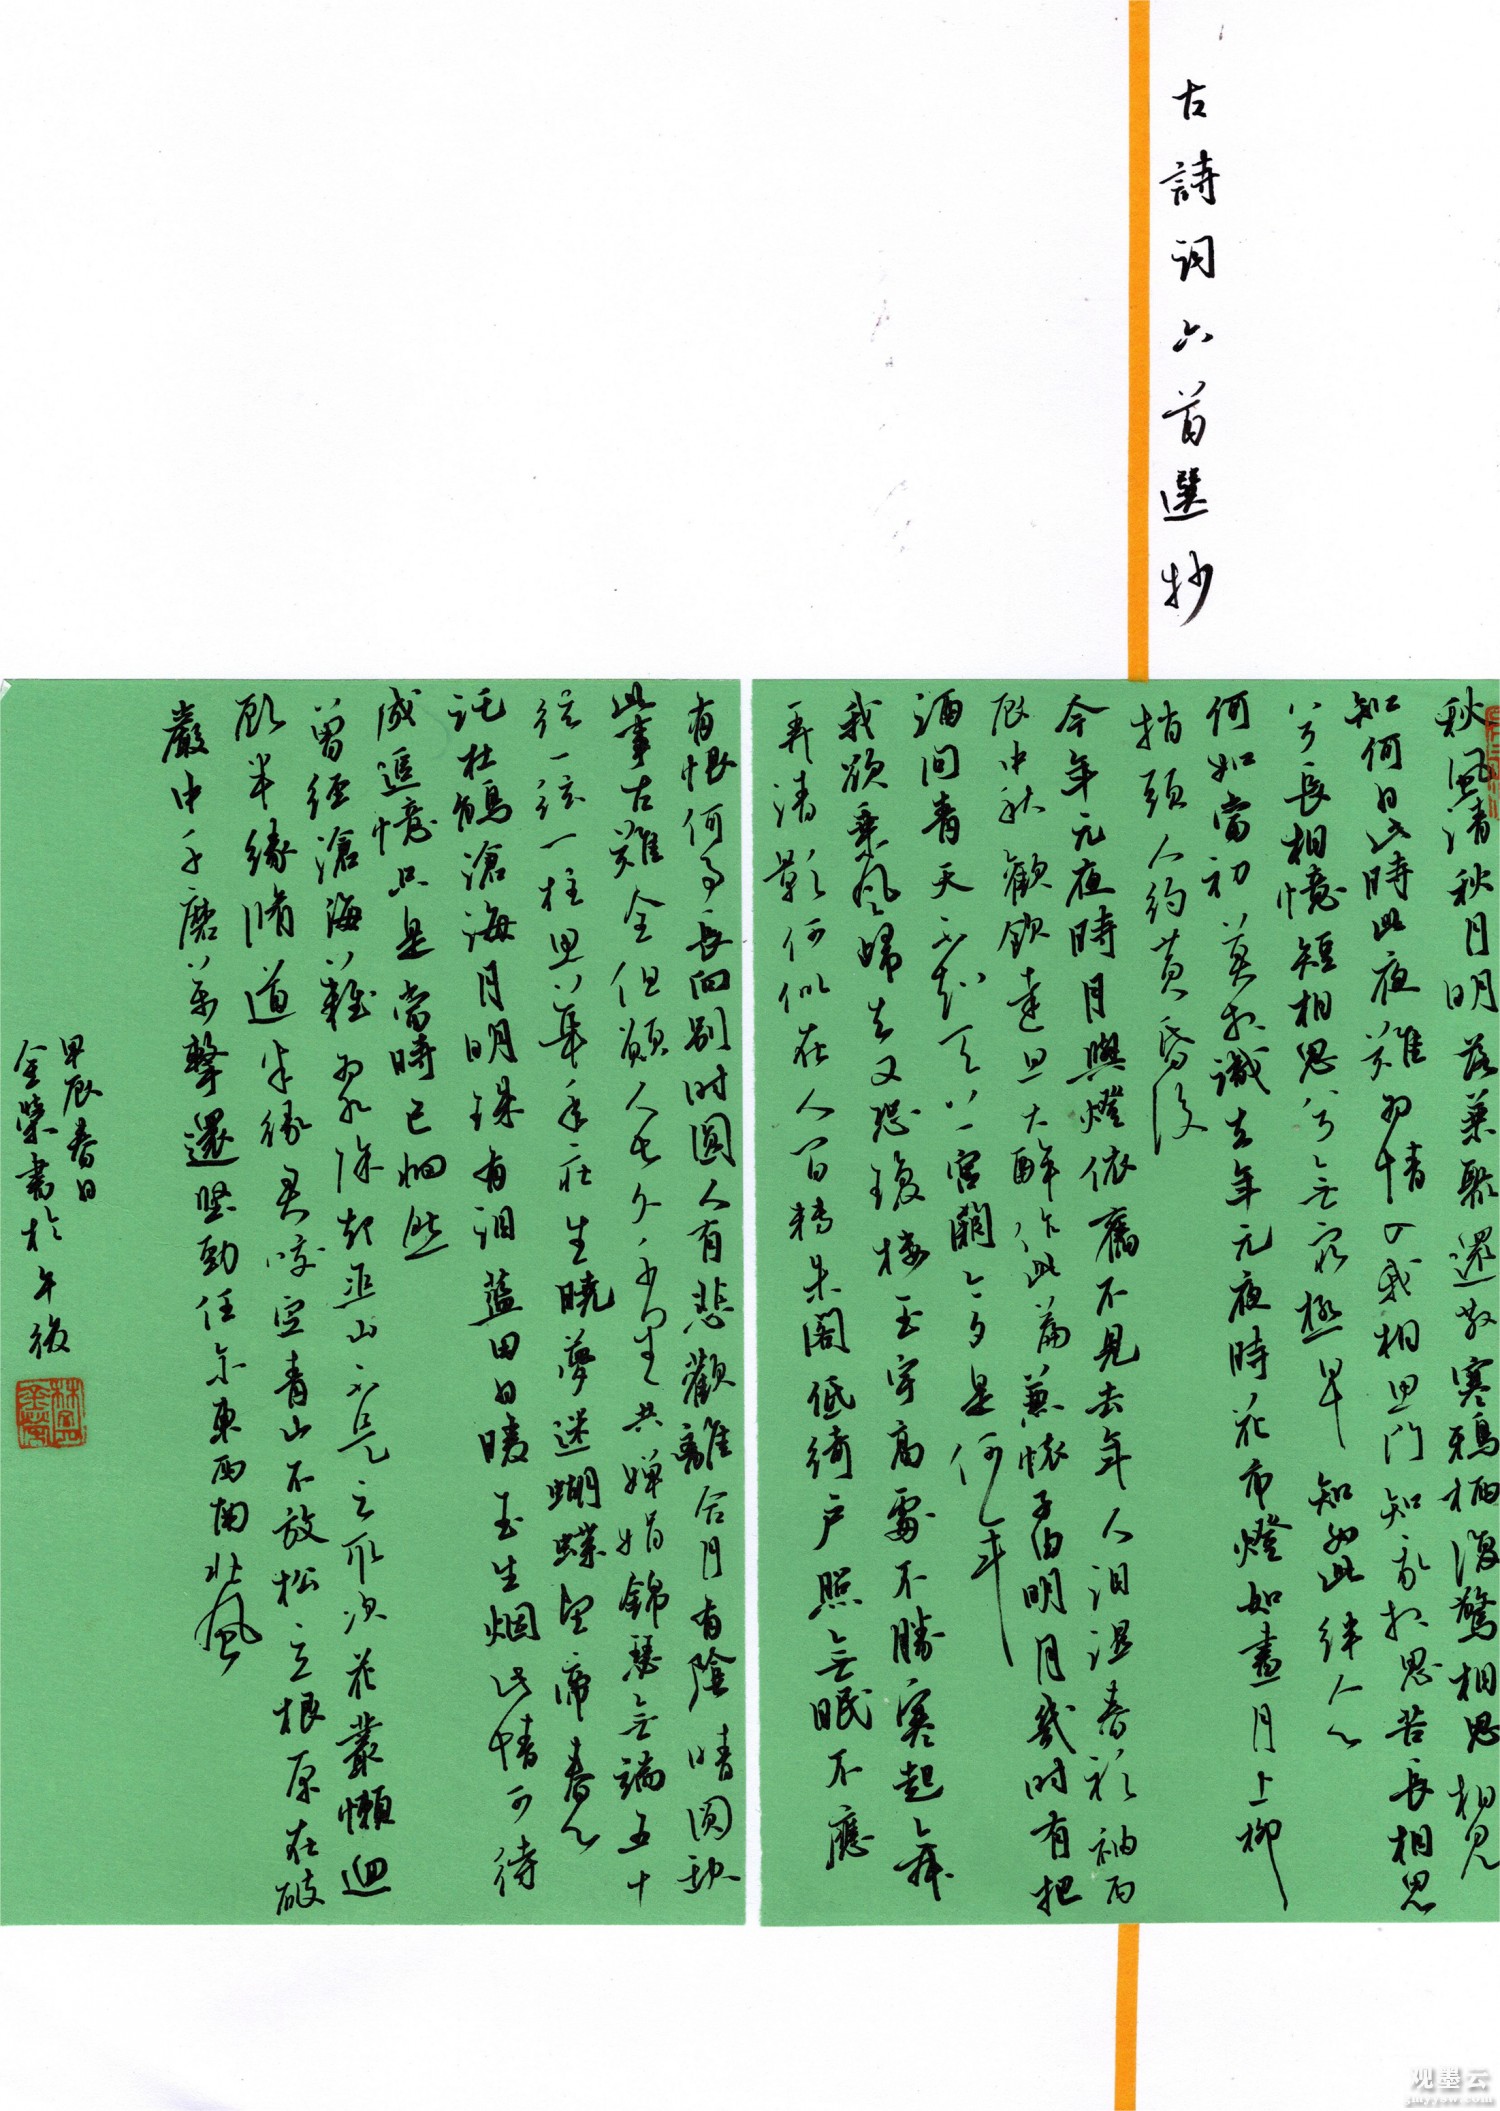 古詩詞六首選抄
秋風清秋月明落葉聚還散寒鴉栖復驚相思相見
知何日此時此夜難為情入我相思門知我相思苦長相思
兮長相憶短相思兮無窮極早知如此絆人心
何如當初莫相識去年元夜時花市燈如晝月上柳
梢頭人約黃昏後
今年元夜時月與燈依舊不見去年人泪濕春衫袖丙
辰中秋歡飲達旦大醉作此篇兼懷子由明月幾时有把
酒问青天不知天上宮闕今夕是何年
我欲乘風歸去又恐瓊樓玉宇高處不勝寒起舞
弄清影何似在人間轉朱閣低綺户照無眠不應
有恨何事長向别时圓人有悲歡離合月有陰晴圓缺
此事古難全但願人长久千里共嬋娟錦瑟無端五十
弦一弦一柱思華年莊生曉夢迷蝴蝶望帝春心
託杜鵑滄海月明珠有泪藍田日暖玉生烟此情可待
成追憶只是當時已惘然
曾經滄海難為水除却巫山不是雲取次花叢懶迴
顧半緣脩道半緣君咬定青山不放松立根原在破
巖中千磨萬擊還堅勁任尔東西南北風
甲辰春日
金榮書於午後
观墨云